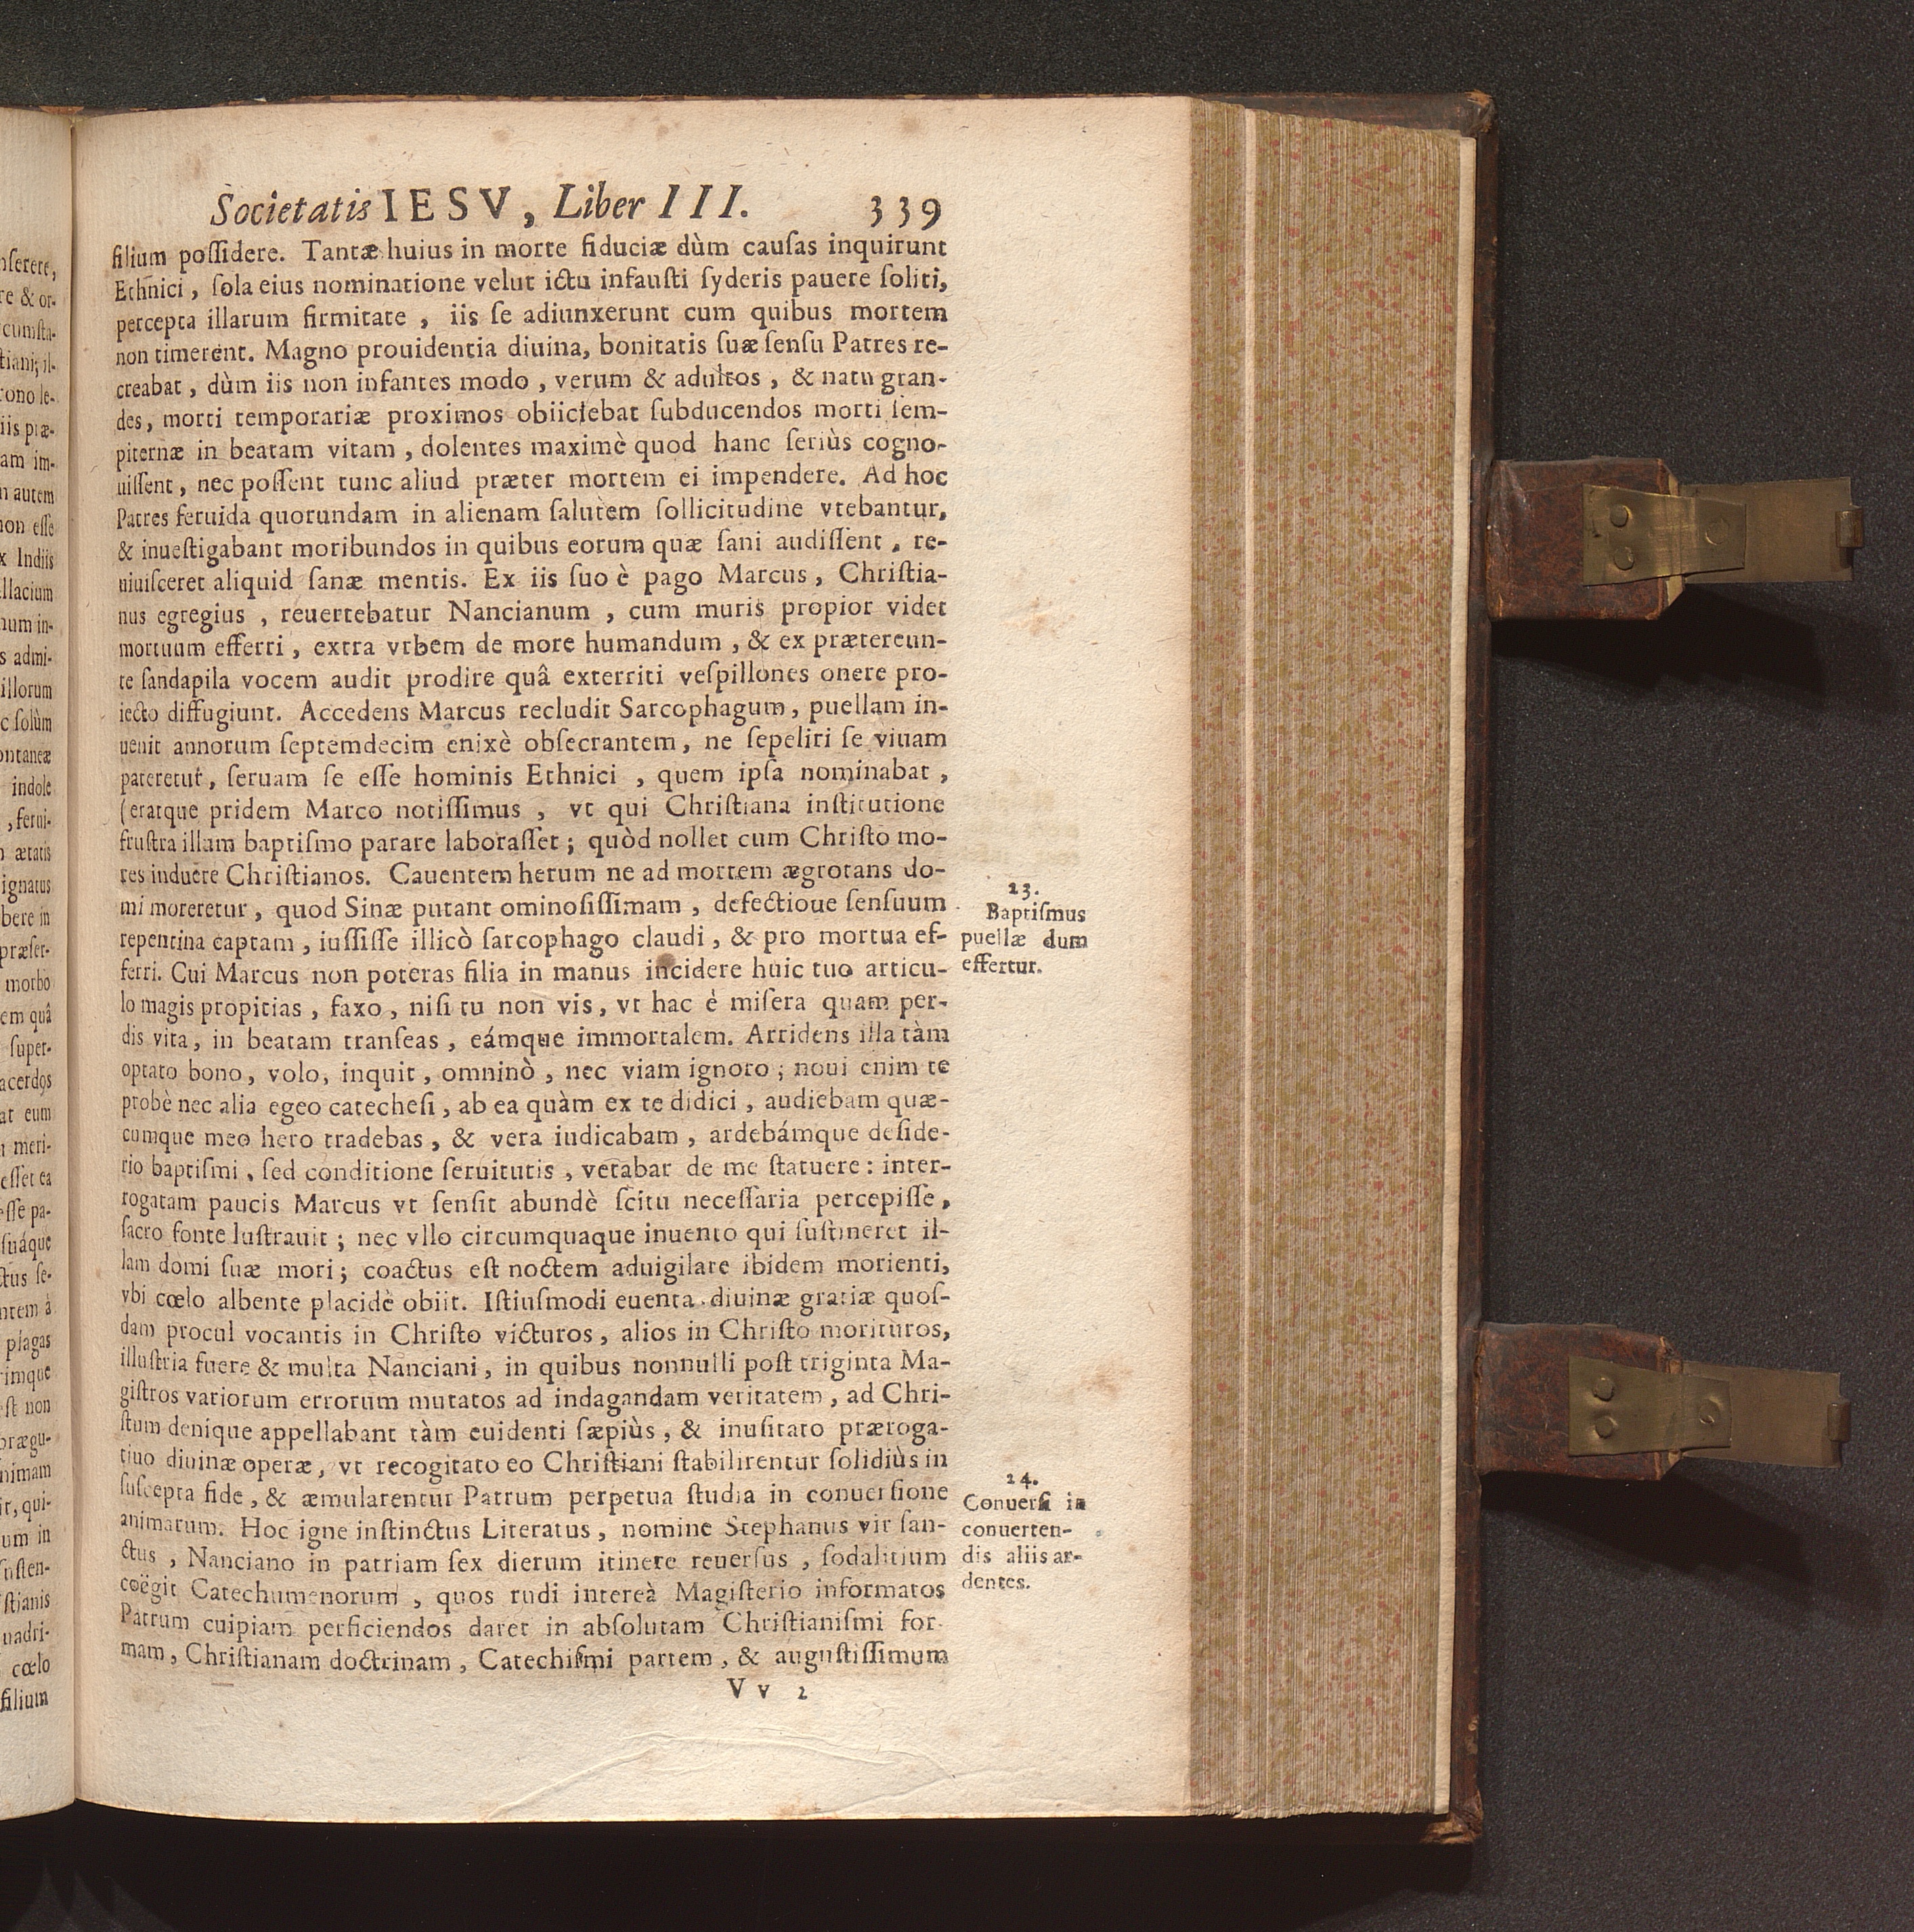 Societatis IESV, Liber III. 339
filium poſſidere. Tantæ huius in morte fiduciæ dùm cauſas inquirunt
Ethnici, ſola eius nominatione velut ictu infauſti ſyderis pauere ſoliti,
percepta illarum firmitate, iis ſe adiunxerunt cum quibus mortem
non timerent. Magno prouidentia diuina, bonitatis ſuæ ſenſu Patres re-
creabat, dùm iis non infantes modo, verum & adultos, & natu gran-
des, morti temporariæ proximos obiiciebat ſubducendos morti ſem-
piternæ in beatam vitam, dolentes maximè quod hanc ſeriùs cogno-
uiſſent, nec poſſent tunc aliud præter mortem ei impendere. Ad hoc
Patres feruida quorundam in alienam ſalutem ſollicitudine vtebantur,
& inueſtigabant moribundos in quibus eorum quæ ſani audiſſent, re-
uiuiſceret aliquid ſanæ mentis. Ex iis ſuo è pago Marcus, Chriſtia-
nus egregius, reuertebatur Nancianum, cum muris propior videt
mortuum efferri, extra vrbem de more humandum, & ex prætereun-
te ſandapila vocem audit prodire quâ exterriti veſpillones onere pro-
iecto diffugiunt. Accedens Marcus recludit Sarcophagum, puellam in-
uenit annorum ſeptemdecim enixè obſecrantem, ne ſepeliri ſe viuam
pateretur, ſeruam ſe eſſe hominis Ethnici, quem ipſa nominabat,
(eratque pridem Marco notiſſimus, vt qui Chriſtiana inſtitutione
fruſtra illam baptiſmo parare laboraſſet; quòd nollet cum Chriſto mo-
res induere Chriſtianos. Cauentem herum ne ad mortem ægrotans do-
mi moreretur, quod Sinæ putant ominoſiſſimam, defectioue ſenſuum
repentina captam, iuſſiſſe illicò ſarcophago claudi, & pro mortua ef-
ferri. Cui Marcus non poteras filia in manus incidere huic tuo articu-
lo magis propitias, faxo, niſi tu non vis, vt hac è miſera quam per-
dis vita, in beatam tranſeas, eámque immortalem. Arridens illa tàm
optato bono, volo, inquit, omninò, nec viam ignoro; noui enim te
probè nec alia egeo catecheſi, ab ea quàm ex te didici, audiebam quæ-
cumque meo hero tradebas, & vera iudicabam, ardebámque deſide-
rio baptiſmi, ſed conditione ſeruitutis, vetabar de me ſtatuere: inter-
rogatam paucis Marcus vt ſenſit abundè ſcitu neceſſaria percepiſſe,
ſacro fonte luſtrauit; nec vllo circumquaque inuento qui ſuſtineret il-
lam domi ſuæ mori; coactus eſt noctem aduigilare ibidem morienti,
vbi cœlo albente placidè obiit. Iſtiuſmodi euenta diuinæ gratiæ quoſ-
dam procul vocantis in Chriſto victuros, alios in Chriſto morituros,
illuſtria fuere & multa Nanciani, in quibus nonnulli poſt triginta Ma-
giſtros variorum errorum mutatos ad indagandam veritatem, ad Chri-
ſtum denique appellabant tàm euidenti ſæpiùs, & inuſitato præroga-
tiuo diuinæ operæ, vt recogitato eo Chriſtiani ſtabilirentur ſolidiùs in
ſuſcepta fide, & æmularentur Patrum perpetua ſtudia in conuerſione
animarum. Hoc igne inſtinctus Literatus, nomine Stephanus vir ſan-
ctus, Nanciano in patriam ſex dierum itinere reuerſus, ſodalitium
coëgit Catechumenorum, quos rudi intereà Magiſterio informatos
Patrum cuipiam perficiendos daret in abſolutam Chriſtianiſmi for-
mam, Chriſtianam doctrinam, Catechiſmi partem, & auguſtiſſimum
V v 2
23.
Baptiſmus
puellæ dum
effertur.
24.
Conuerſi in
conuerten-
dis aliis ar-
dentes.